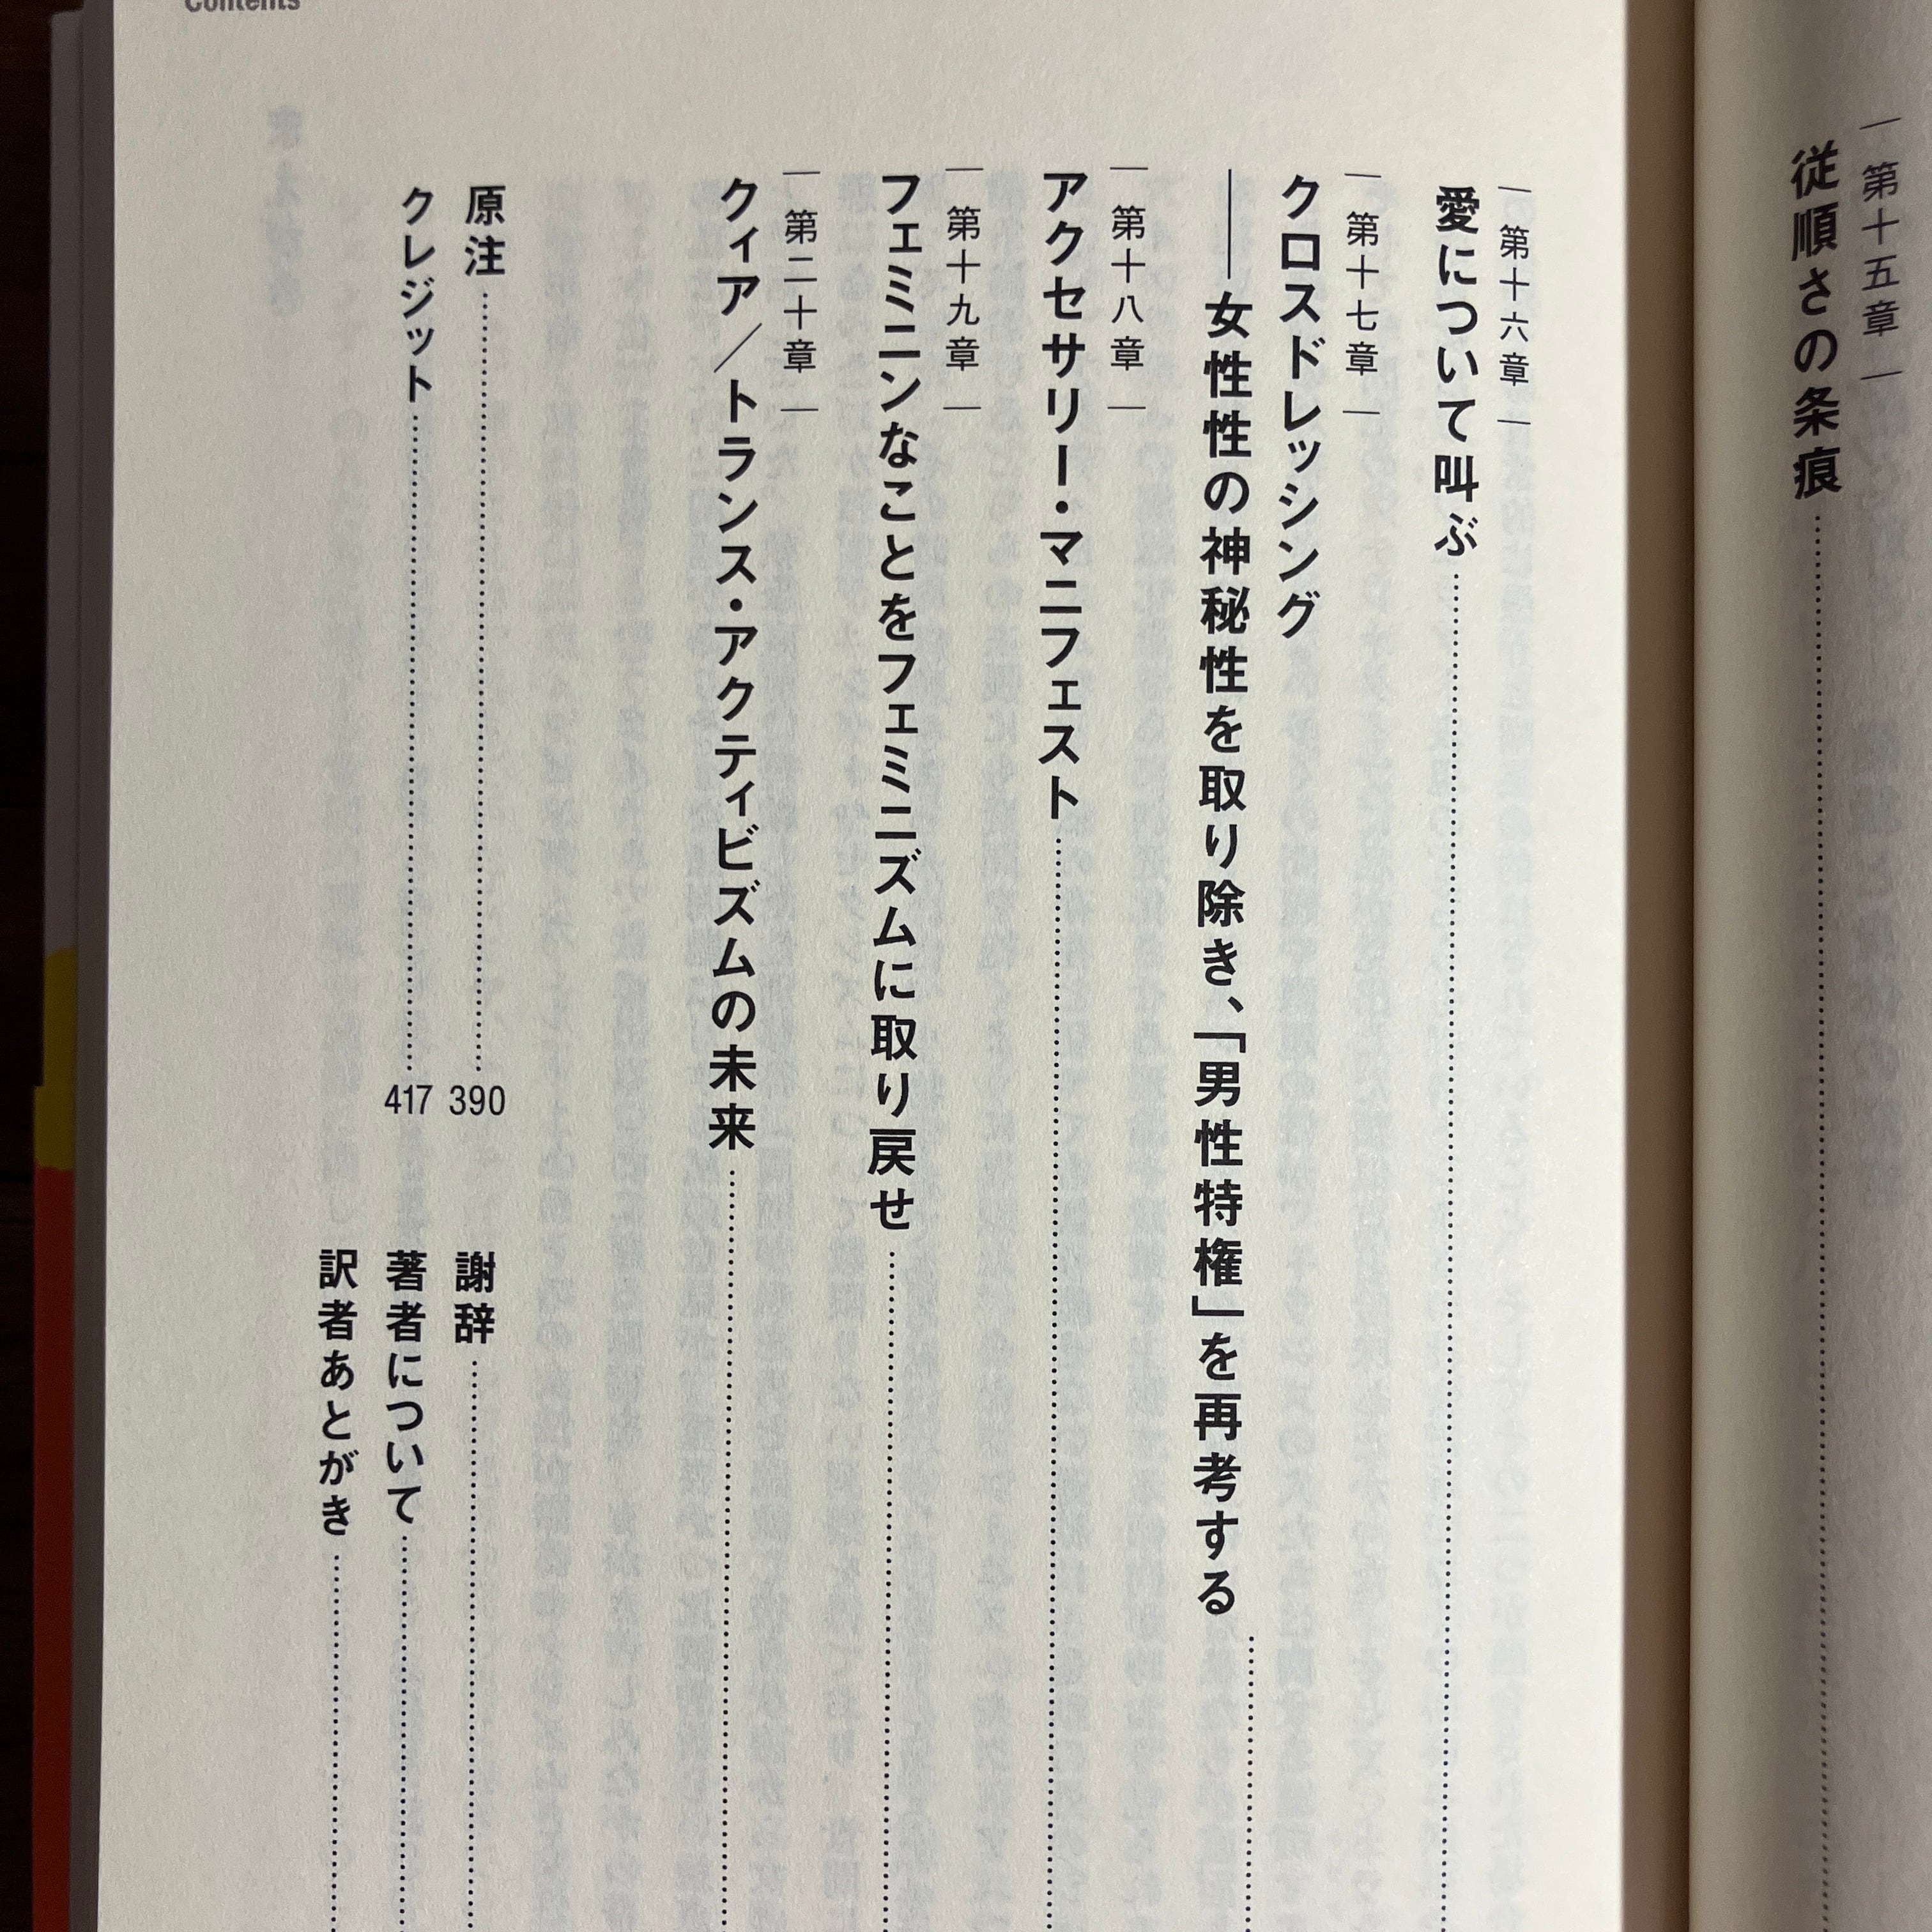 Contents
第十五章
従順さの条痕
第十六章
愛について叫ぶ
第十七章
クロスドレッシング
――女性性の神秘性を取り除き、「男性特権」を再考する
第十八章
アクセサリー・マニフェスト
第十九章
フェミニンなことをフェミニズムに取り戻せ
第二十章
クィア／トランス・アクティビズムの未来
原注 390
クレジット 417
謝辞
著者について
訳者あとがき